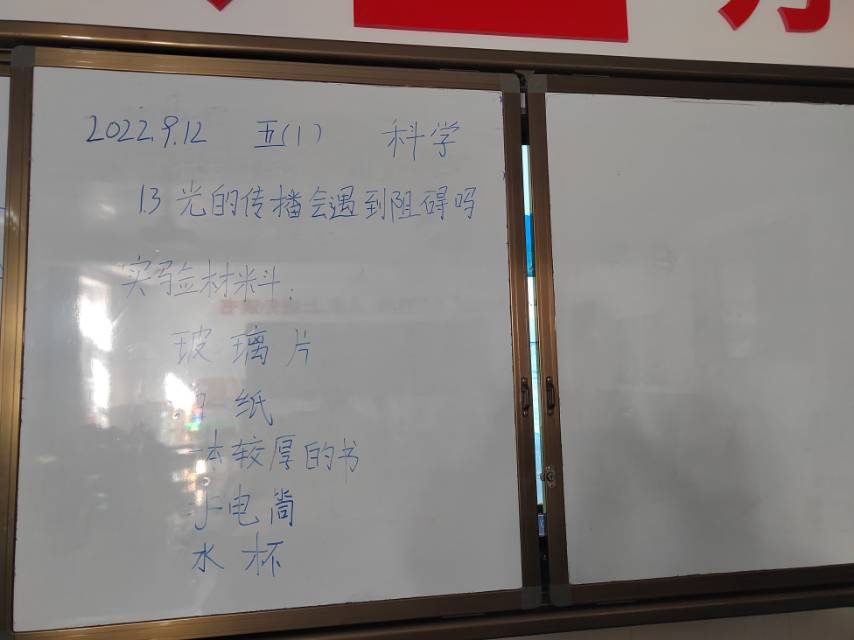 2022.9.12 五(1) 科学
1.3 光的传播会遇到阻碍吗
实验材料:
玻璃片
纸
较厚的书
手电筒
水杯